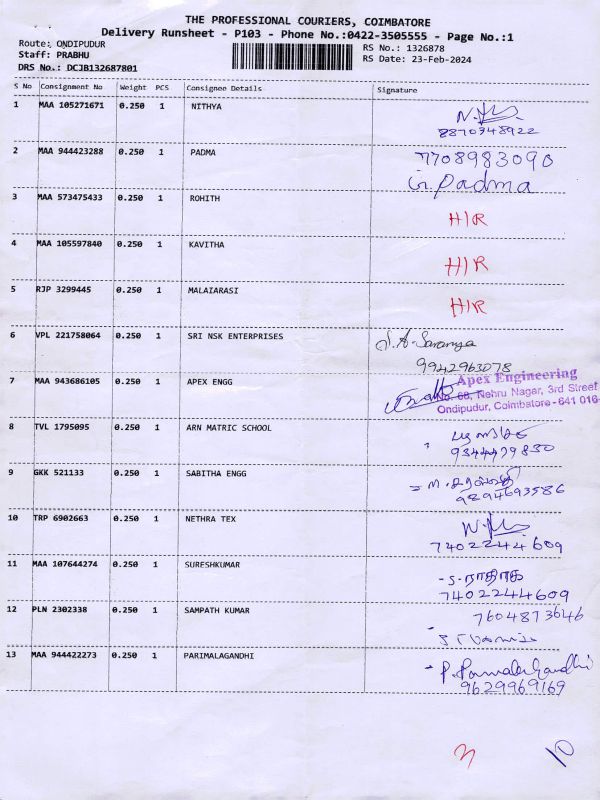 THE PROFESSIONAL COURIERS, COIMBATORE
Delivery Runsheet - P103 - Phone No.:0422-3505555 - Page No.:1
Route: ONDIPUDUR
Staff: PRABHU
DRS No.: DCJB132687801
RS No.: 1326878
RS Date: 23-Feb-2024
S No Consignment No Weight PCS Consignee Details Signature
1 MAA 105271671 0.250 1 NITHYA
8870348922
2 MAA 944423288 0.250 1 PADMA 7708983090
G. Padma
3 MAA 573475433 0.250 1 ROHITH H/R
4 MAA 105597840 0.250 1 KAVITHA H/R
5 RJP 3299445 0.250 1 MALAIARASI H/R
6 VPL 221758064 0.250 1 SRI NSK ENTERPRISES S.A. Saranya
9942963078
7 MAA 943686105 0.250 1 APEX ENGG Apex Engineering
No. 68, Nehru Nagar, 3rd Street
Ondipudur, Coimbatore - 641 016
8 TVL 1795095 0.250 1 ARN MATRIC SCHOOL
9344479830
9 GKK 521133 0.250 1 SABITHA ENGG
9894693586
10 TRP 6902663 0.250 1 NETHRA TEX
7402244609
11 MAA 107644274 0.250 1 SURESHKUMAR
7402244609
12 PLN 2302338 0.250 1 SAMPATH KUMAR 7604873646
13 MAA 944422273 0.250 1 PARIMALAGANDHI P. Parimalagandhi
9629969169
3 10